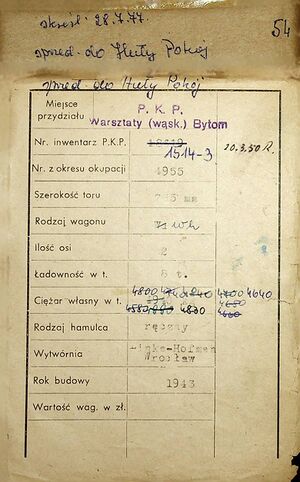 skreśl. 28.7.77.
54
sprzed. do Huty Pokój
sprzed. do Huty Pokój
Miejsce przydziału
P. K. P.
Warsztaty (wąsk.) Bytom
Nr. inwentarz P.K.P.
1514-3
10.3.50 R.
Nr. z okresu okupacji
4955
Szerokość toru
785 mm
Rodzaj wagonu
Ilość osi
2
Ładowność w t.
8 t.
Ciężar własny w t.
4800
4700 4640
4680
4580
4830
4660
Rodzaj hamulca
ręczny
Wytwórnia
Linke-Hofman
Wrocław
Rok budowy
1943
Wartość wag. w zł.